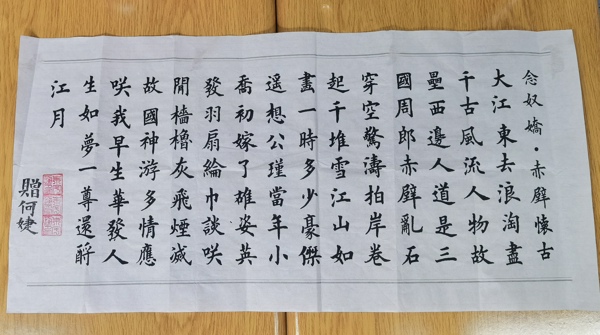 念奴嬌·赤壁懷古
大江東去浪淘盡
千古風流人物故
壘西邊人道是三
國周郎赤壁亂石
穿空驚濤拍岸卷
起千堆雪江山如
畫一時多少豪傑
遥想公瑾當年小
喬初嫁了雄姿英
發羽扇綸巾談咲
閒檣櫓灰飛煙滅
故國神游多情應
咲我早生華發人
生如夢一尊還酹
江月
贈何婕